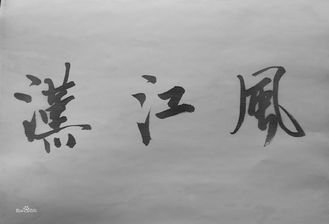 漢江風